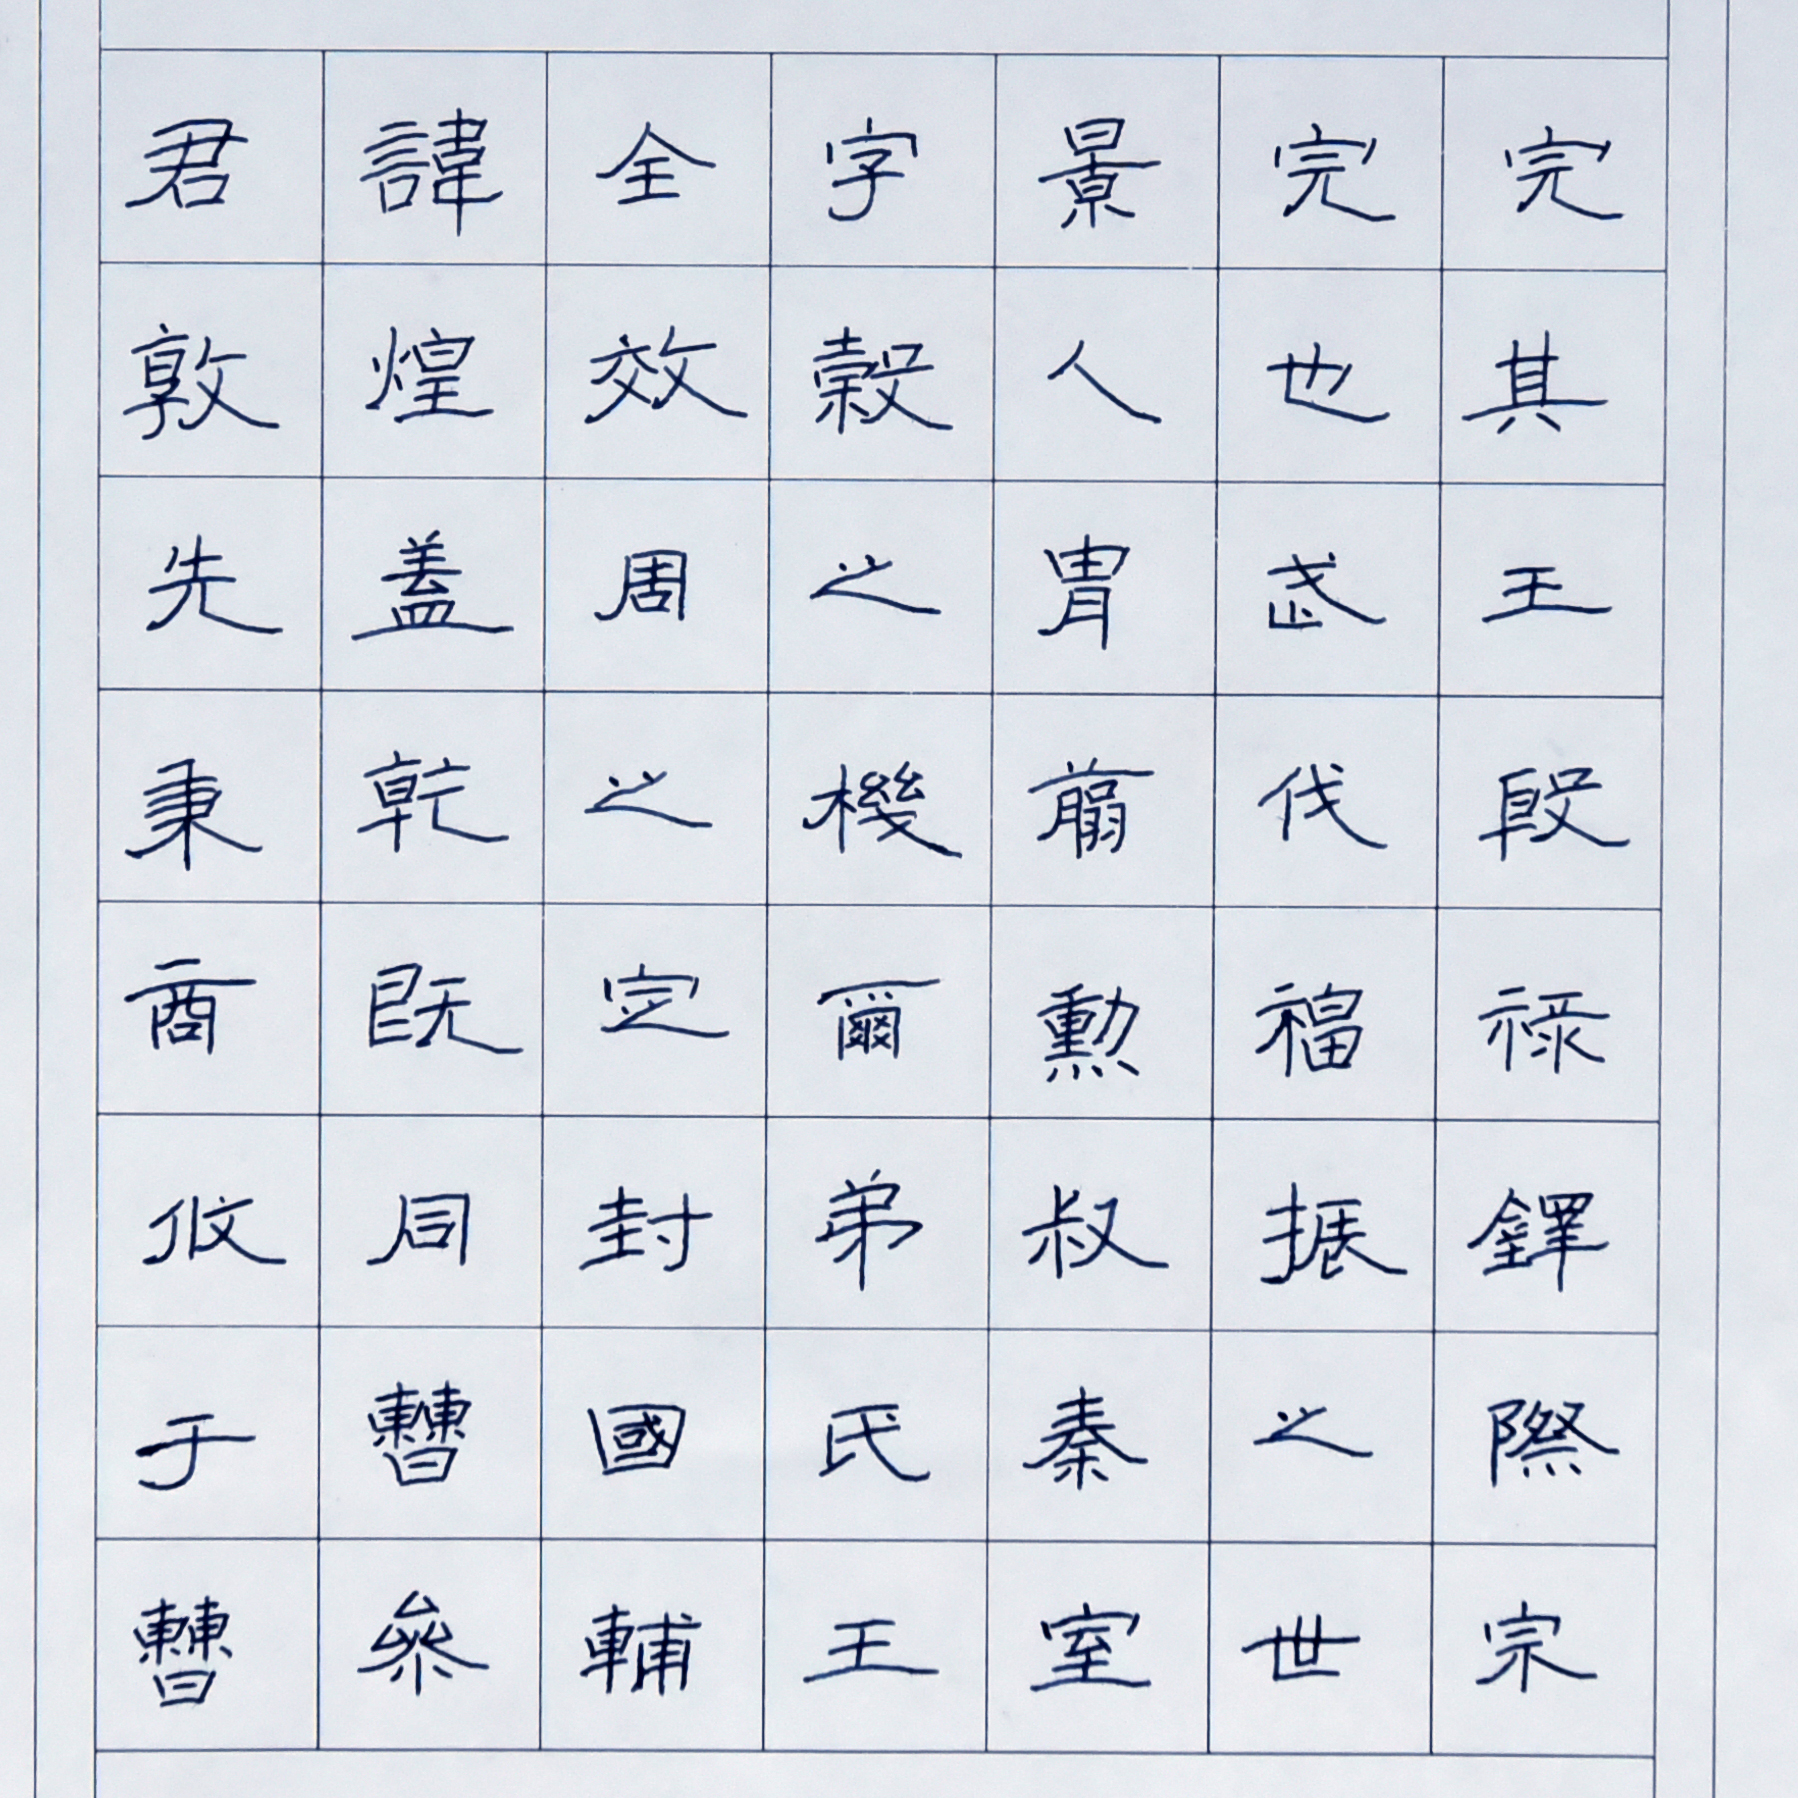 君諱全字景完完
敦煌效穀人也其
先蓋周之胄武王
秉乾之機翦伐殷
商既定爾勲福祿
攸同封弟叔振鐸
于曹國氏秦之際
曹參輔王室世宗